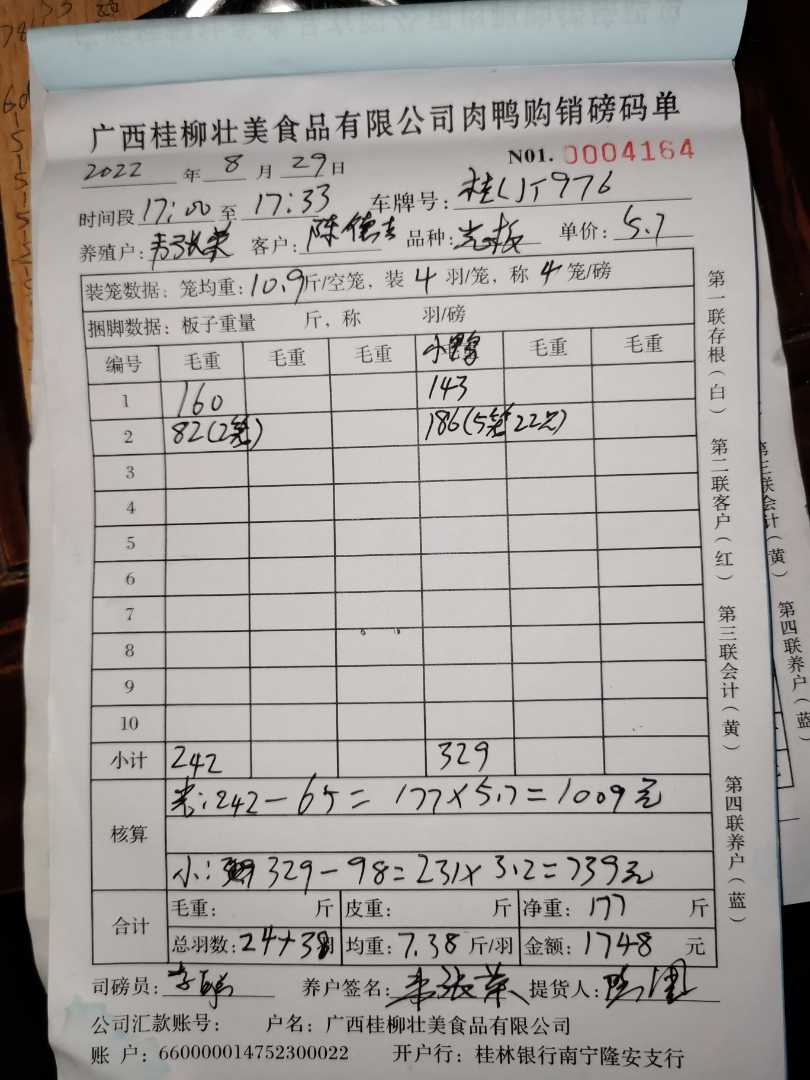 广西桂柳壮美食品有限公司肉鸭购销磅码单
2022 年 8 月 29日 N01. 0004164
时间段 17:00 至 17:33 车牌号: 桂 976
养殖户: 客户: 陈德 品种: 单价: 5.7
装笼数据: 笼均重: 10.9斤/空笼, 装 4 羽/笼, 称 4 笼/磅
捆脚数据: 板子重量 斤, 称 羽/磅
编号 毛重 毛重 毛重 小 毛重 毛重
1 160 143
2 82(2笼) 186(5笼22只)
3
4
5
6
7
8
9
10
小计 242 329
核算
:242-65= 177×5.7=1009元
小: 329-98=231×3.2=739元
合计
毛重: 斤 皮重: 斤 净重: 177 斤
总羽数: 24+38羽 均重: 7.38 斤/羽 金额: 1748 元
司磅员: 李 养户签名: 张荣 提货人:
公司汇款账号: 户名: 广西桂柳壮美食品有限公司
账 户: 660000014752300022 开户行: 桂林银行南宁隆安支行
第一联存根(白) 第二联客户(红) 第三联会计(黄) 第四联养户(蓝)
第三联会计(黄) 第四联养户(蓝)